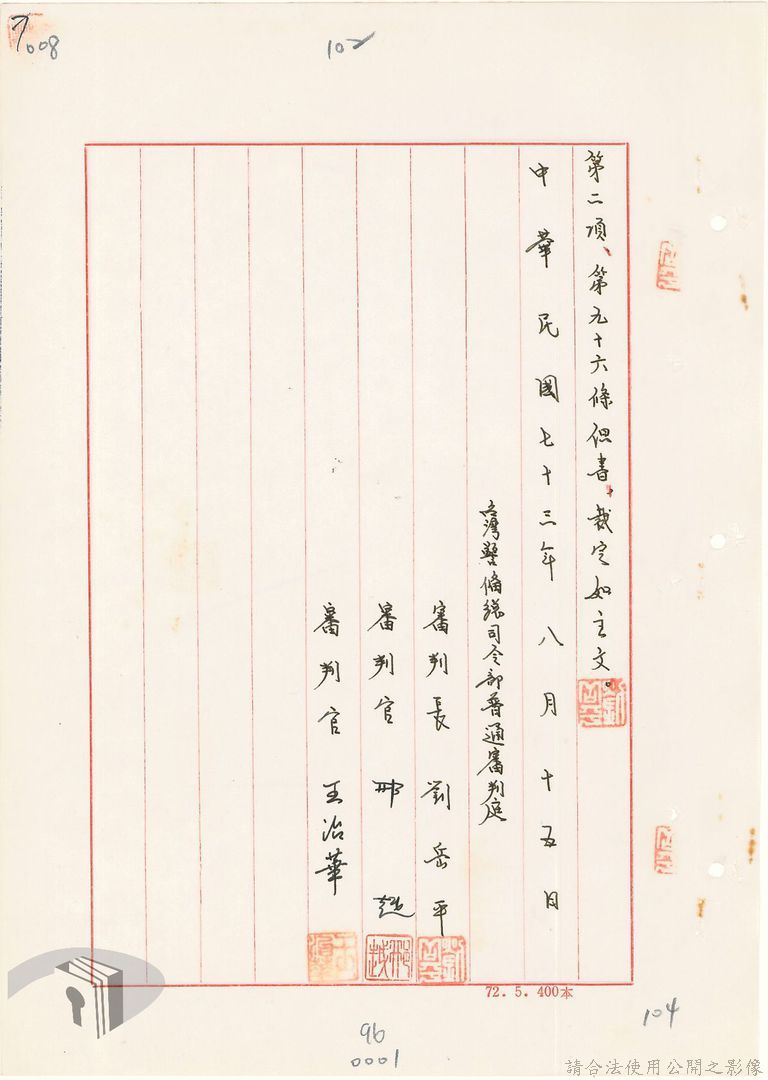 008
102
第二項、第九十六條但書,裁定如主文。
中華民國七十三年八月十五日
台灣警備總司令部普通審判庭
審判長 劉岳平
審判官 邢越
審判官 王治華
72.5.400本
104
96
0001
請合法使用公開之影像